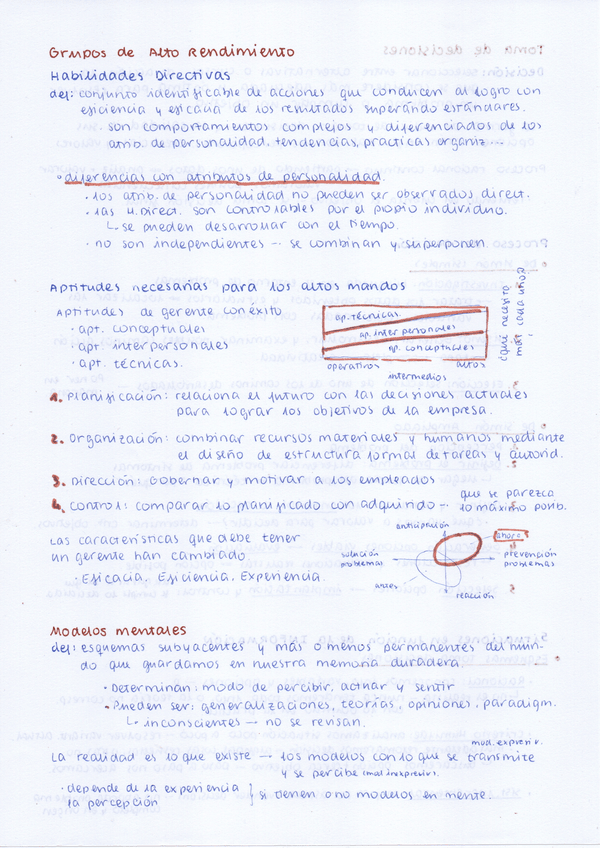 Grupos de Alto Rendimiento
Habilidades Directivas
def: conjunto identificable de acciones que conducen al logro con
eficiencia y eficacia de los resultados superando estándares.
· son comportamientos complejos y diferenciados de los
atrib. de personalidad, tendencias, practicas organiz...
· diferencias con atributos de personalidad.
· los atrib. de personalidad no pueden ser observados direct.
· las H. Direct. son controlables por el propio individuo.
↳ se pueden desarrollar con el tiempo.
· no son independientes -- se combinan y superponen.
Aptitudes necesarias para los altos mandos
Aptitudes de gerente con éxito
· apt. conceptuales
· apt. interpersonales
· apt. técnicas.
ap. técnicas.
ap. interpersonales
ap. conceptuales
operativos altos
intermedios
¿qué necesito
más cada uno?
1. Planificación: relaciona el futuro con las decisiones actuales
para lograr los objetivos de la empresa.
2. Organización: combinar recursos materiales y humanos mediante
el diseño de estructura formal de tareas y autorid.
3. Dirección: Gobernar y motivar a los empleados
4. Control: comparar lo planificado con adquirido -- que se parezca
lo máximo posib.
Las características que debe tener
un gerente han cambiado
· Eficacia, Eficiencia, Experiencia.
anticipación
ahora
solución
problemas
prevención
problemas
antes
reacción
Modelos mentales
def: esquemas subyacentes y más o menos permanentes del mun-
do que guardamos en nuestra memoria duradera.
· Determinan: modo de percibir, actuar y sentir
· Pueden ser: generalizaciones, teorías, opiniones, paradigm.
↳ inconscientes — no se revisan.
mod. expresiv.
La realidad es lo que existe — los modelos con lo que se transmite
y se percibe (mod. inexpresiv).
· depende de la experiencia
la percepción } si tienen o no modelos en mente.